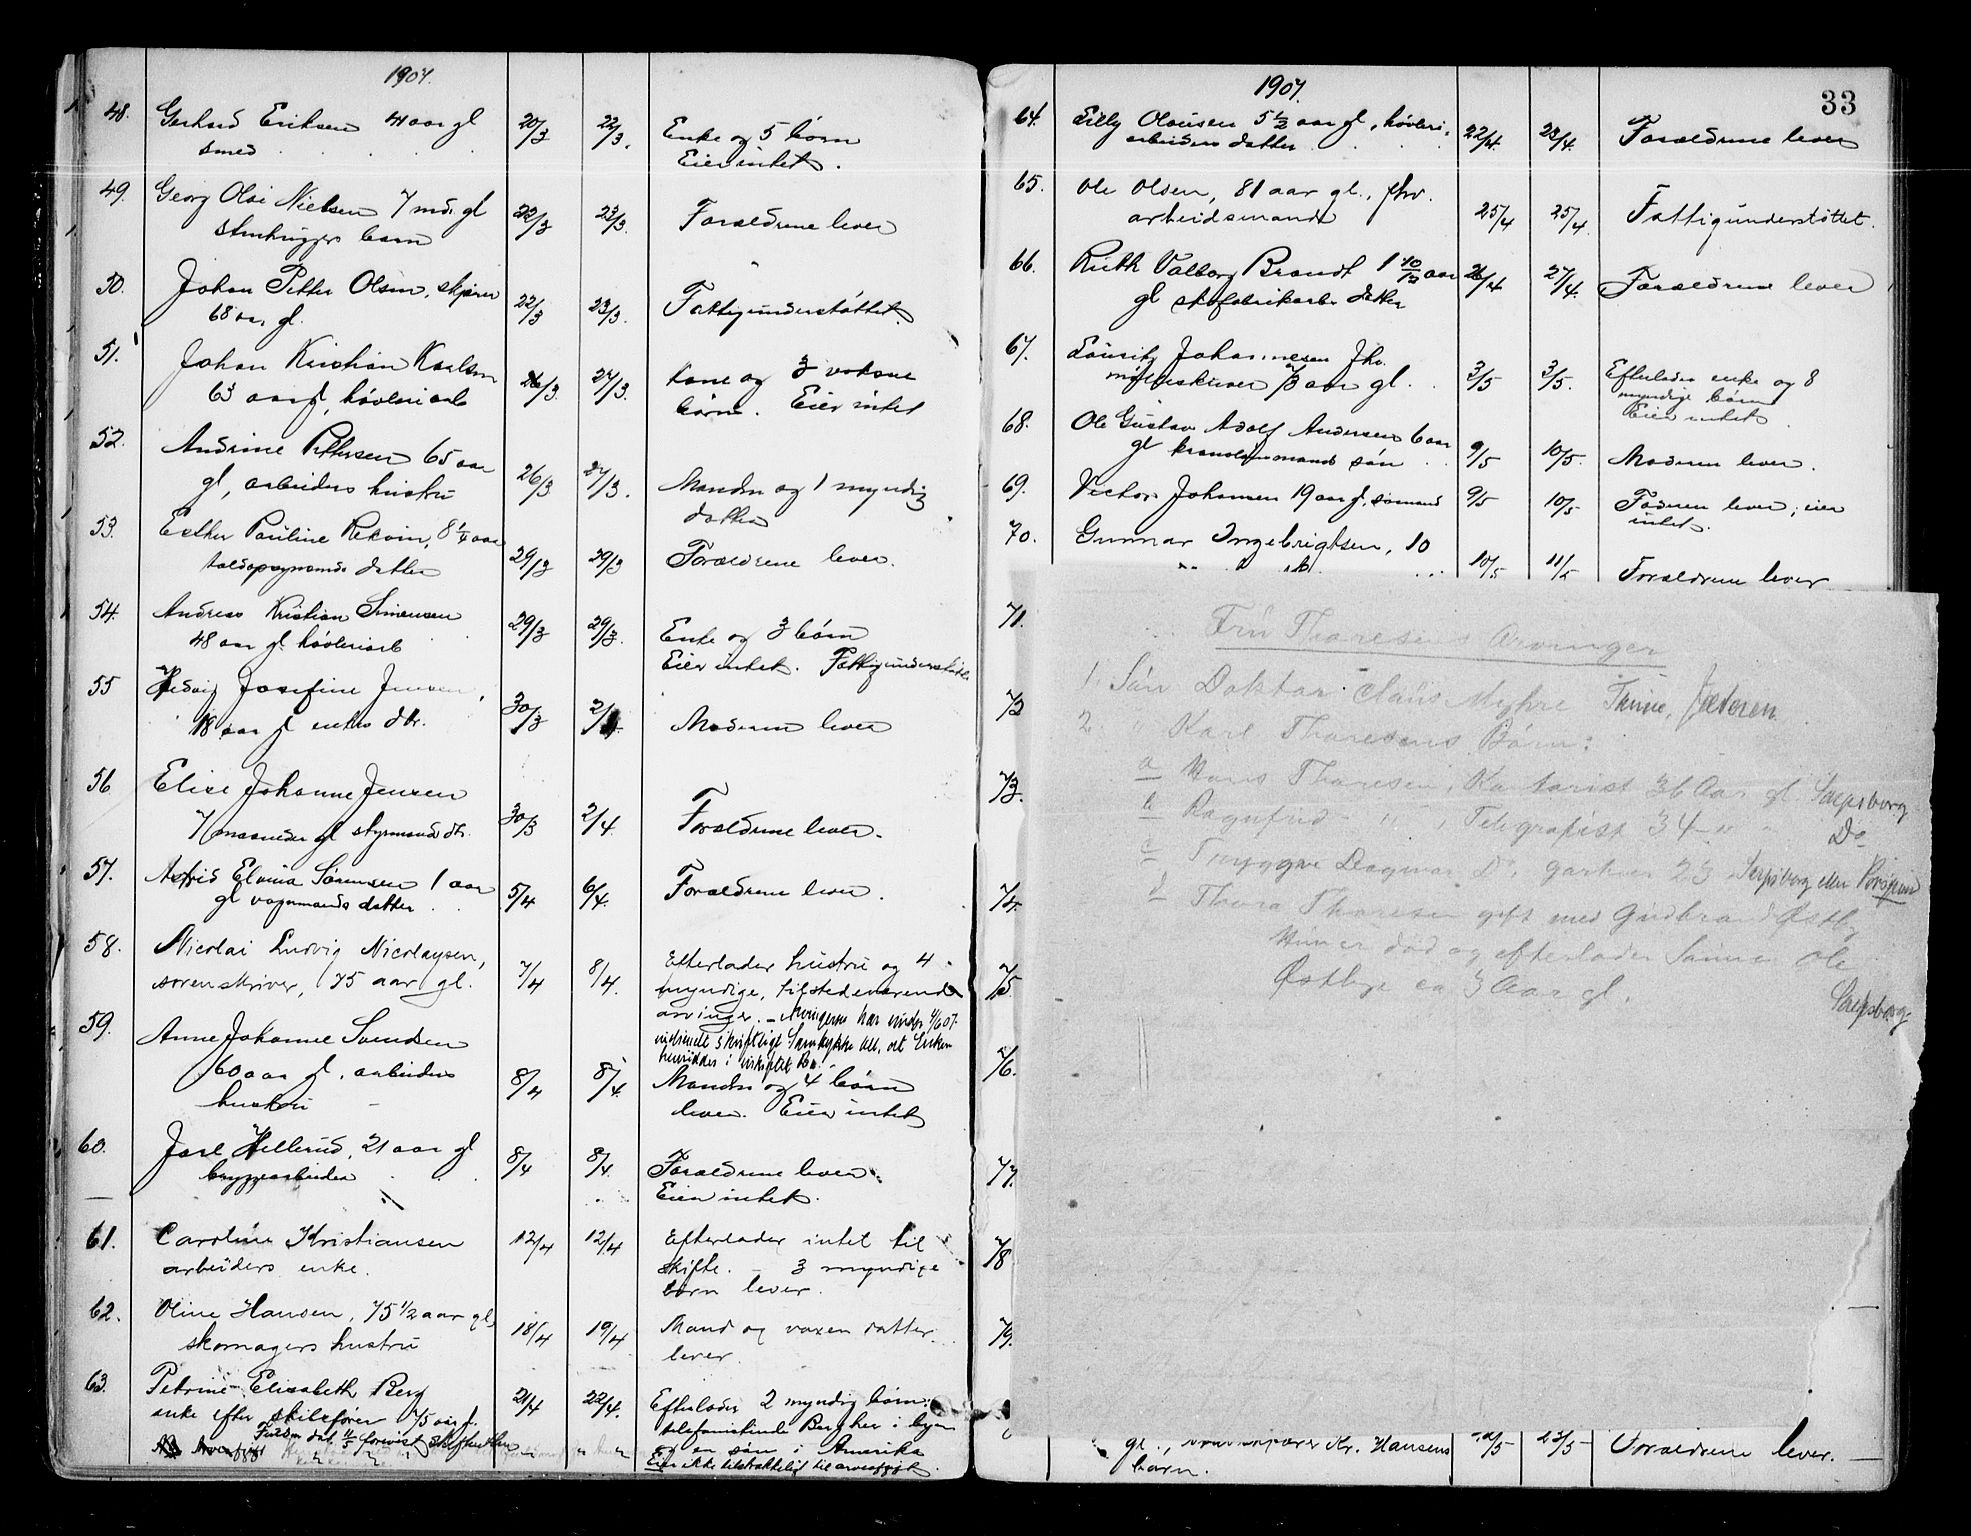 1907.
48. Gerhard Eriksen 41 aar gl 20/3 22/3. Enke og 5 börn
smed Eier intet.
49. Georg Olai Nielsen 7 mdr. gl 22/3 23/3. Forældrene lever
stenhugger barn
50. Johan Petter Olsen, skjærer 22/3 23/3. Fattigunderstöttet.
68 aar gl.
51. Johan Kristian Karlsen 26/3. 27/3. Kone og 3 voksne
63 aar gl, hövleriarb börn. Eier intet
52. Andrine Pettersen 65 aar 26/3 27/3. Manden og 1 myndig
gl, arbeiders hustru datter
53. Esther Pauline Rekvin, 8 1/4 aar 29/3 29/3 Forældrene lever.
datter
54. Andreas Kristian Simensen 29/3 29/3. Enke og 3 börn
48 aar gl hövleriarb Eier intet. Fattigunderstöt
55 Hedvig Josefine Jensen, 30/3 2/4 Moderen lever
18 aar gl enkes dtr.
56 Elise Johanne Jensen 30/3 2/4. Forældrene lever.
7 maaneder gl styrmands dtr.
57. Astrid Elvina Sörensen 1 aar 5/4 6/4. Forældrene lever.
gl vognmands datter
58. Nicolai Ludvig Nicolaysen, 7/4 8/4. Efterlader hustru og 4
sorenskriver, 75 aar gl. myndige, tilstedeværende
arvinger. – Arvingerne har under 4/6 07
indsendt skriftligt Samtykke till, at Enken
hensidder i uskiftet Bo.
59. Anne Johanne Svendsen 8/4 8/4. Manden og 4 börn
60 aar gl, arbeiders lever. Eier intet
hustru
60. Jarl Hellerud, 21 aar gl 8/4 8/4. Forældrene lever.
bryggearbeider Eier intet.
61. Caroline Kristiansen 12/4 12/4 Efterlader intet til
arbeiders enke. skifte. – 3 myndige
börn lever.
62. Oline Hansen, 75 1/2 aar gl, 18/4 19/4 Mand og voxen datter
skomagers hustru lever.
63. Petrine Elisabeth Berg 21/4 22/4. Efterlader 2 myndig börn:
enke efter skibsförer 75 aar gl. telefonistinde Berg her i byen
og en sön i Amerika
Eier ikke tilstrækkelig til arveafgift.
1907.
33
64. Lilly Olausen 5 1/2 aar gl, høvleri 22/4. 23/4. Forældrene lever
arbeiders datter
65. Ole Olsen, 81 aar gl., fhv. 25/4 25/4. Fattigunderstöttet.
arbeidsmand
66. Ruth Valborg Brandt 1 10/12 aar 26/4 27/4. Forældrene lever
gl skofabrikarb datter
67. Lauritz Johannesen fhv. 3/5 3/5. Efterlader enke og 8
73 aar gl. myndige börn
Eier intet
68. Ole Gustav Adolf Andersen 6 aar 9/5 10/5. Moderen lever.
gl sön
69. Victor Johansen 19 aar gl, sömand 9/5 10/5 Faderen lever, eier
intet.
70. Gunnar Ingebrigtsen, 10 10/5 11/5 Forældrene lever
71.
72
73.
74.
75.
76.
77.
78
79.
Fru Thoresens Arvinger
1. Sön Doktor Claus Myhre Time, Jæderen
2 Karl Thoresens Börn:
a Hans Thoresen, Kontorist 36 Aar gl. Sarpsborg
b Ragnfrid " Telegrafist 34 " Do
c Tryggve Dagmar Do, gartner 23 Sarpsborg eller Porsgrund
d Thora Thoresen gift med Gudbrand Østby
Hun er död og efterlader Sönnen Ole
Østbye ca 3 Aar gl. Sarpsborg
gl., Kr. Hansens 23/5 Forældrene lever.
barn.